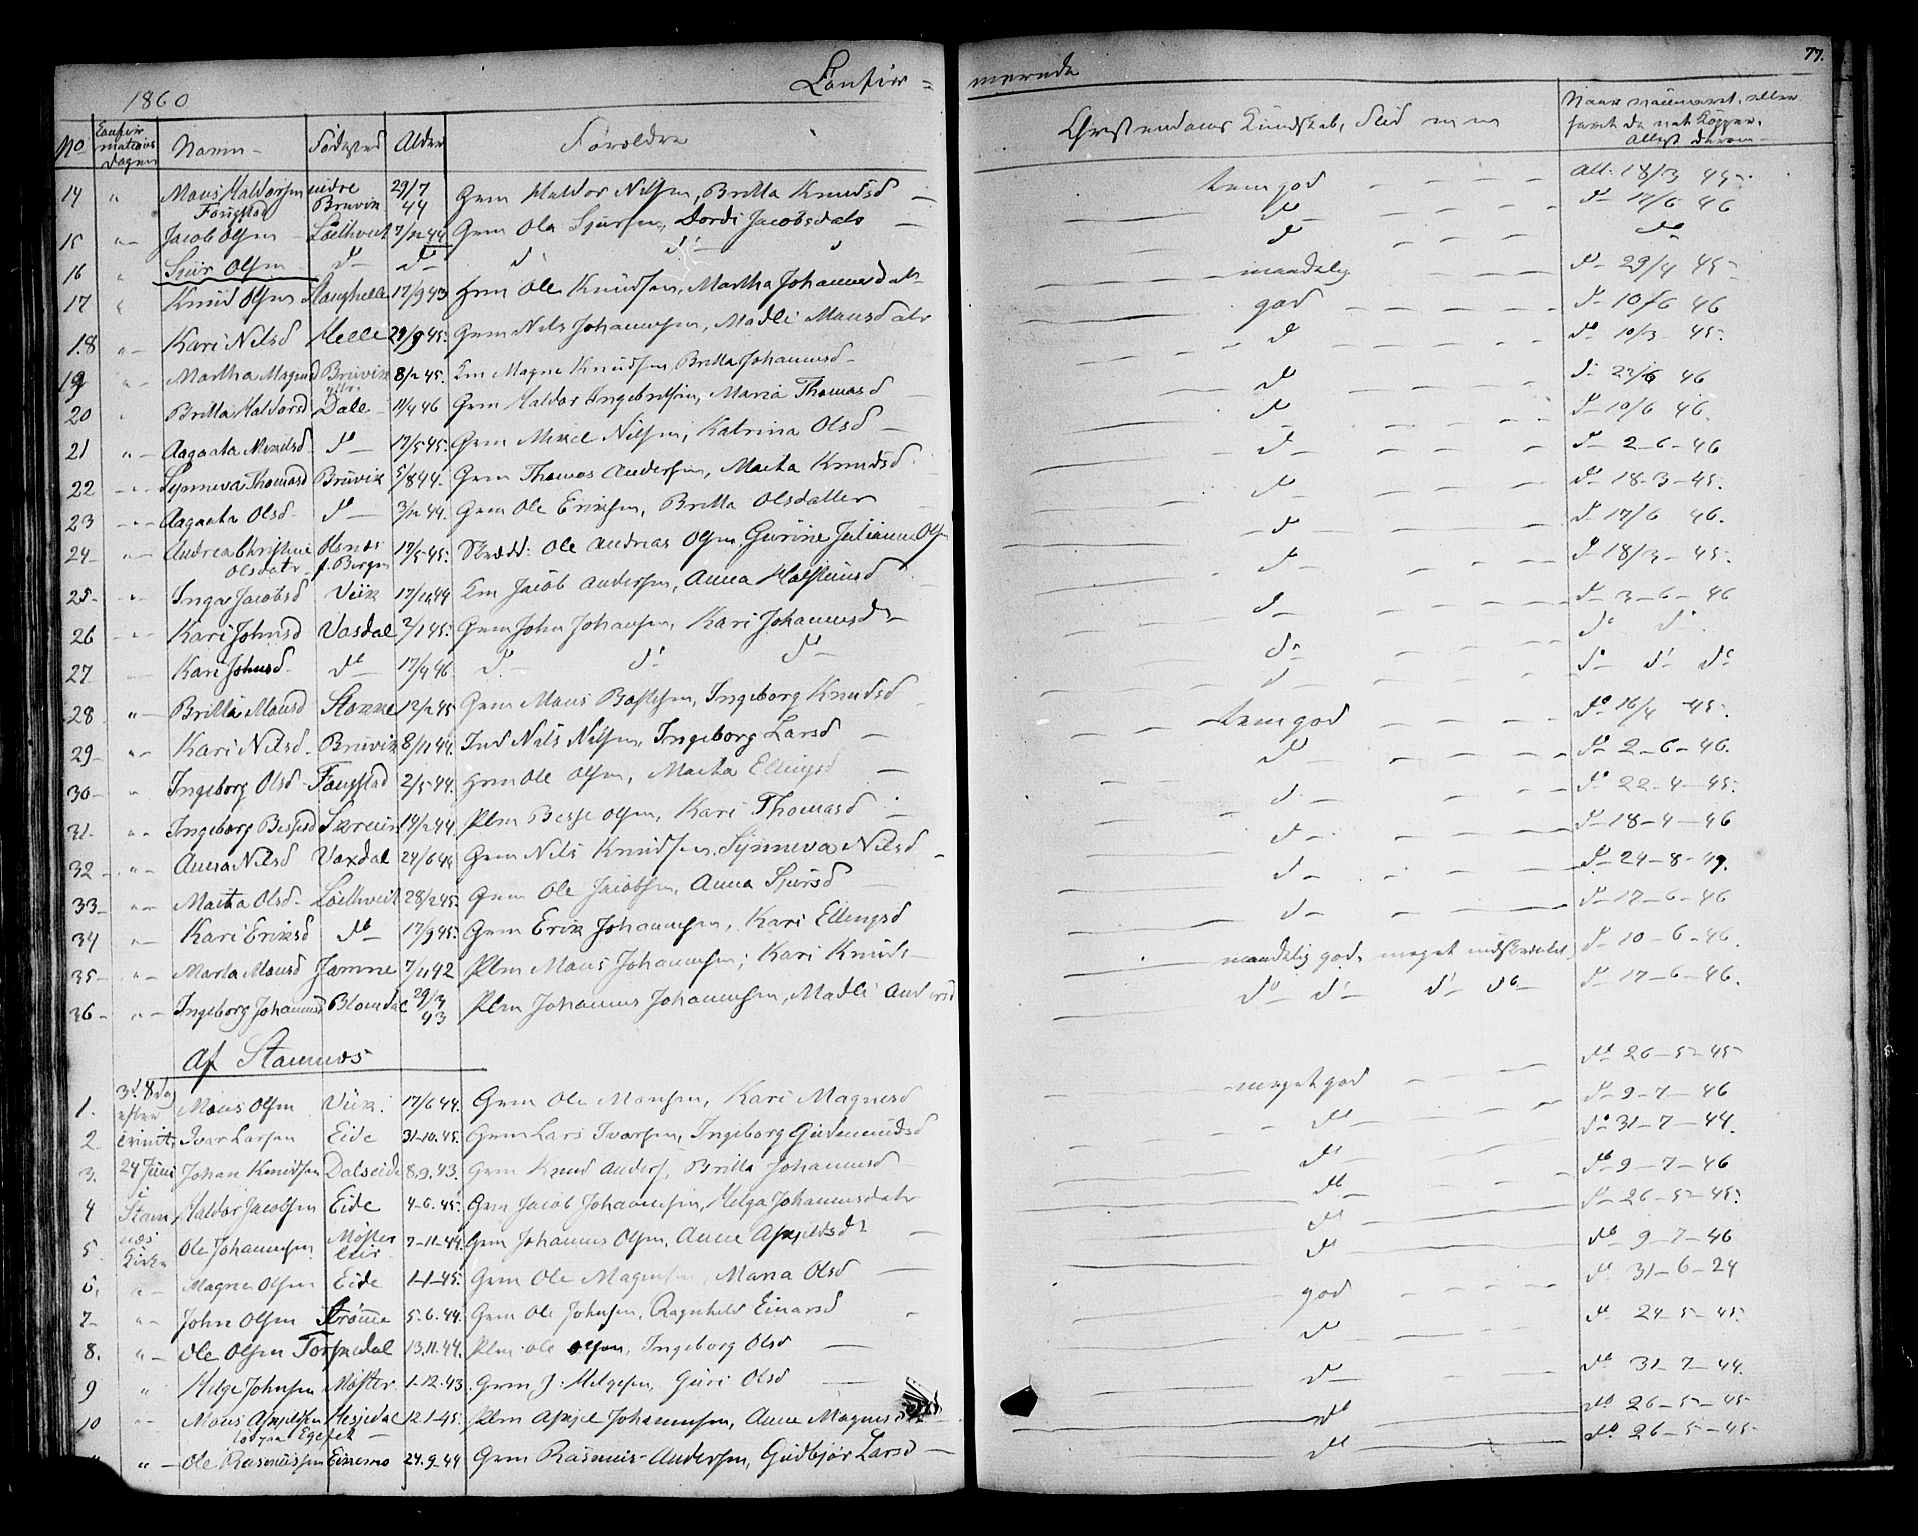 1860 Confir= merede 77.
No Confirmations Dagen Navn Fødested Alder Forældre Christendoms Kundskab, Flid
14 " Mons Haldorsen Fougstad nidre Bruvik 29/7 44 Grm Haldor Nilsen, Britta Knudsd temgod Att. 18/3 45
15 " Jacob Olsen 7/12 44 Grm Ole Sjursen, Dordi Jacobsdatr do do 14/6 46
16 " Sjur Olsen do do do do do do do
17 " Knud Olsen 17/9 43 Grm Ole Knudsen, Martha Johannesdatr maadelig do 29/4 45
18 " Kari Nilsd Helle 29/9 45 Grm Nils Johannesen, Madli Monsdatr god do 10/6 46
19 " Martha Magned Bruvik 8/2 45. Magne Knudsen Britta Johannesd do do 10/3 45
20 " Britta Haldorsd Dale 11/4 46 Grm Haldor Ingebritsen, Maria Thomasd do do 46
21 " Aagaata Mikelsd do 17/5 45. Grm Mikel Nilsen, Katrina Olsd do do 10/6 46.
22 " Synneva Thomasd Bruvik 5/8 44 Grm Thomas Andersen, Marta Knudsd do do 2-6-46
23 " Aagaata Olsd do 3/12 44. Grm Ole Eriksen, Britta Olsdatter do do 18-3-45.
24 " Andrea Christine Olsdatr Olsnes f. Bergen 17/5 45. Skrædd: Ole Andreas Olsen, Gurine Juliane Ols do do 17/6 46.
25 " Inga Jacobsd Viik 17/11 44 Jacob Andersen, Anna Halsteinsd do do 18/3 45.
26 " Kari Johnsd Vaxdal 2/1 45. Grm John Johansen, Kari Johannesdr do do 3-6-46
27 Kari Johnsd do 17/4 46 do do do do do do
28 " Britta Monsd Stamne 12/2 45 Grm Mons Ingeborg Knudsd do do do do
29 " Kari Nilsd Bruvik 8/11 44. Ind Nils Nilsen, Ingeborg Larsd temgod do 16/4 45.
30 " Ingeborg Olsd Fougstad 2/5 44. Grm Ole Olsen, Marta Ellingsd do do 2-6-46.
31 " Ingeborg Bessesd 14/2 44 Plm Besse Olsen, Kari Thomasd do do 22-4-45.
32 " Anna Nilsd Vaxdal 24/6 44 Grm Nils Knudsen, Synneva Nilsd do do 18-4-46
33 " Marta Olsd 28/2 45. Grm Ole Jacobsen, Anna Sjursd do do 24-8-49.
34 " Kari Eriksd do 17/9 45. Grm Erik Johannesen, Kari Ellingsd do do 17-6-46
35 " Marta Monsd Jamne 7/11 42 Plm Mons Johannesen, Kari Knuds maadelig god, meget do 10-6-46.
36 " Ingeborg Johannesd Blomdal 29/3 43 Plm Johannes Johannesen, Madli Andersd do do do do do 17-6-46.
Af Stamnes
1. 3d. Sdag efter Mons Olsen Viik. 17/6 44. Grm Ole Monsen, Kari Magnesd meget god do 26-5-45
2 trinit. Ivar Larsen Eide 31-10.45. Grm Lars Ivarsen, Ingeborg Gudmundsd do do 9-7-46
3. 24 Juni Johan Knudsen Dalseide 8.9.43. Grm Knud Anders, Britta Johannesd do do 31-7-44.
4 i Stam Haldor Jacobsen Eide 4-6.45. Grm Jacob Johannesen, Helga Johannesdatr do do 9-7-46
5. næs Kirke Ole Johannesen Møster 7-11-44. Grm Johannes Olsen, Anne do do 26-5-45.
6. " Magne Olsen Eide 1-1-45. Grm Ole Magnesen, Maria Olsd do do 9-7-46
7. " John Olsen Strømme 5.6.44. Grm Ole Johnsen, Ragnhild Einarsd god do 31-6-24
8. " Ole Olsen Torskedal 13.11.44. Plm Ole Olsen, Ingeborg Olsd do do 24-5-45.
9 " Helge Johnsen Møster 1-12.43. Grm J: Helgesen, Guri Olsd do do 31-7-44.
10 " Mons Hesjedal 12.1-45. Plm Johannesen, Anne do do 26-5-45
" " Ole Rasmussen Eikemo 24.9-44 Grm Rasmus Andersen, Gudbjør Larsd do do 26-5-45